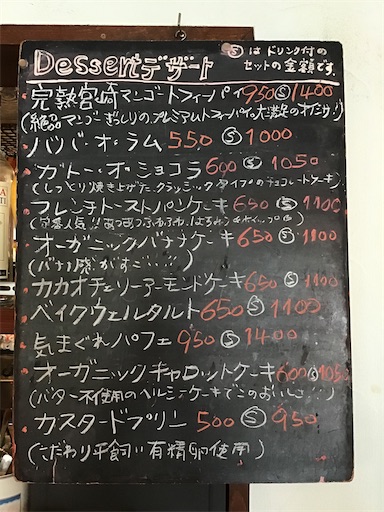 Dessertデザート
Ⓢは ドリンク付の
セットの金額です。
完熟宮崎マンゴートフィーパイ950Ⓢ1400
(絶品マンゴーぎっしりのプレミアムトフィーパイ。大満足のオイシサ!)
ババ・オ・ラム 550Ⓢ1000
ガトー・オ・ショコラ 600Ⓢ1050
(しっとり焼き上げたクラシックタイプのチョコレートケーキ)
フレンチトーストパンケーキ 650Ⓢ1100
(定番人気!!あつあつふわふわ、はちみつ
オーガニックバナナケーキ 650Ⓢ1100
(バナナ感がすごい!!!)
カカオチェリーアーモンドケーキ650Ⓢ1100
ベイクウェルタルト 650Ⓢ1100
気まぐれパフェ 950Ⓢ1400
オーガニックキャロットケーキ600Ⓢ1050
(バター不使用のヘルシーケーキでこのおいしさ!!)
カスタードプリン 500Ⓢ950
(こだわり平飼い有精卵使用)